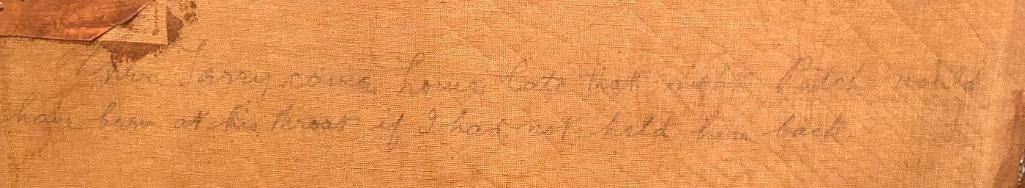 When Larry came home late that night Butch would
have been at his throat if I had not held him back.